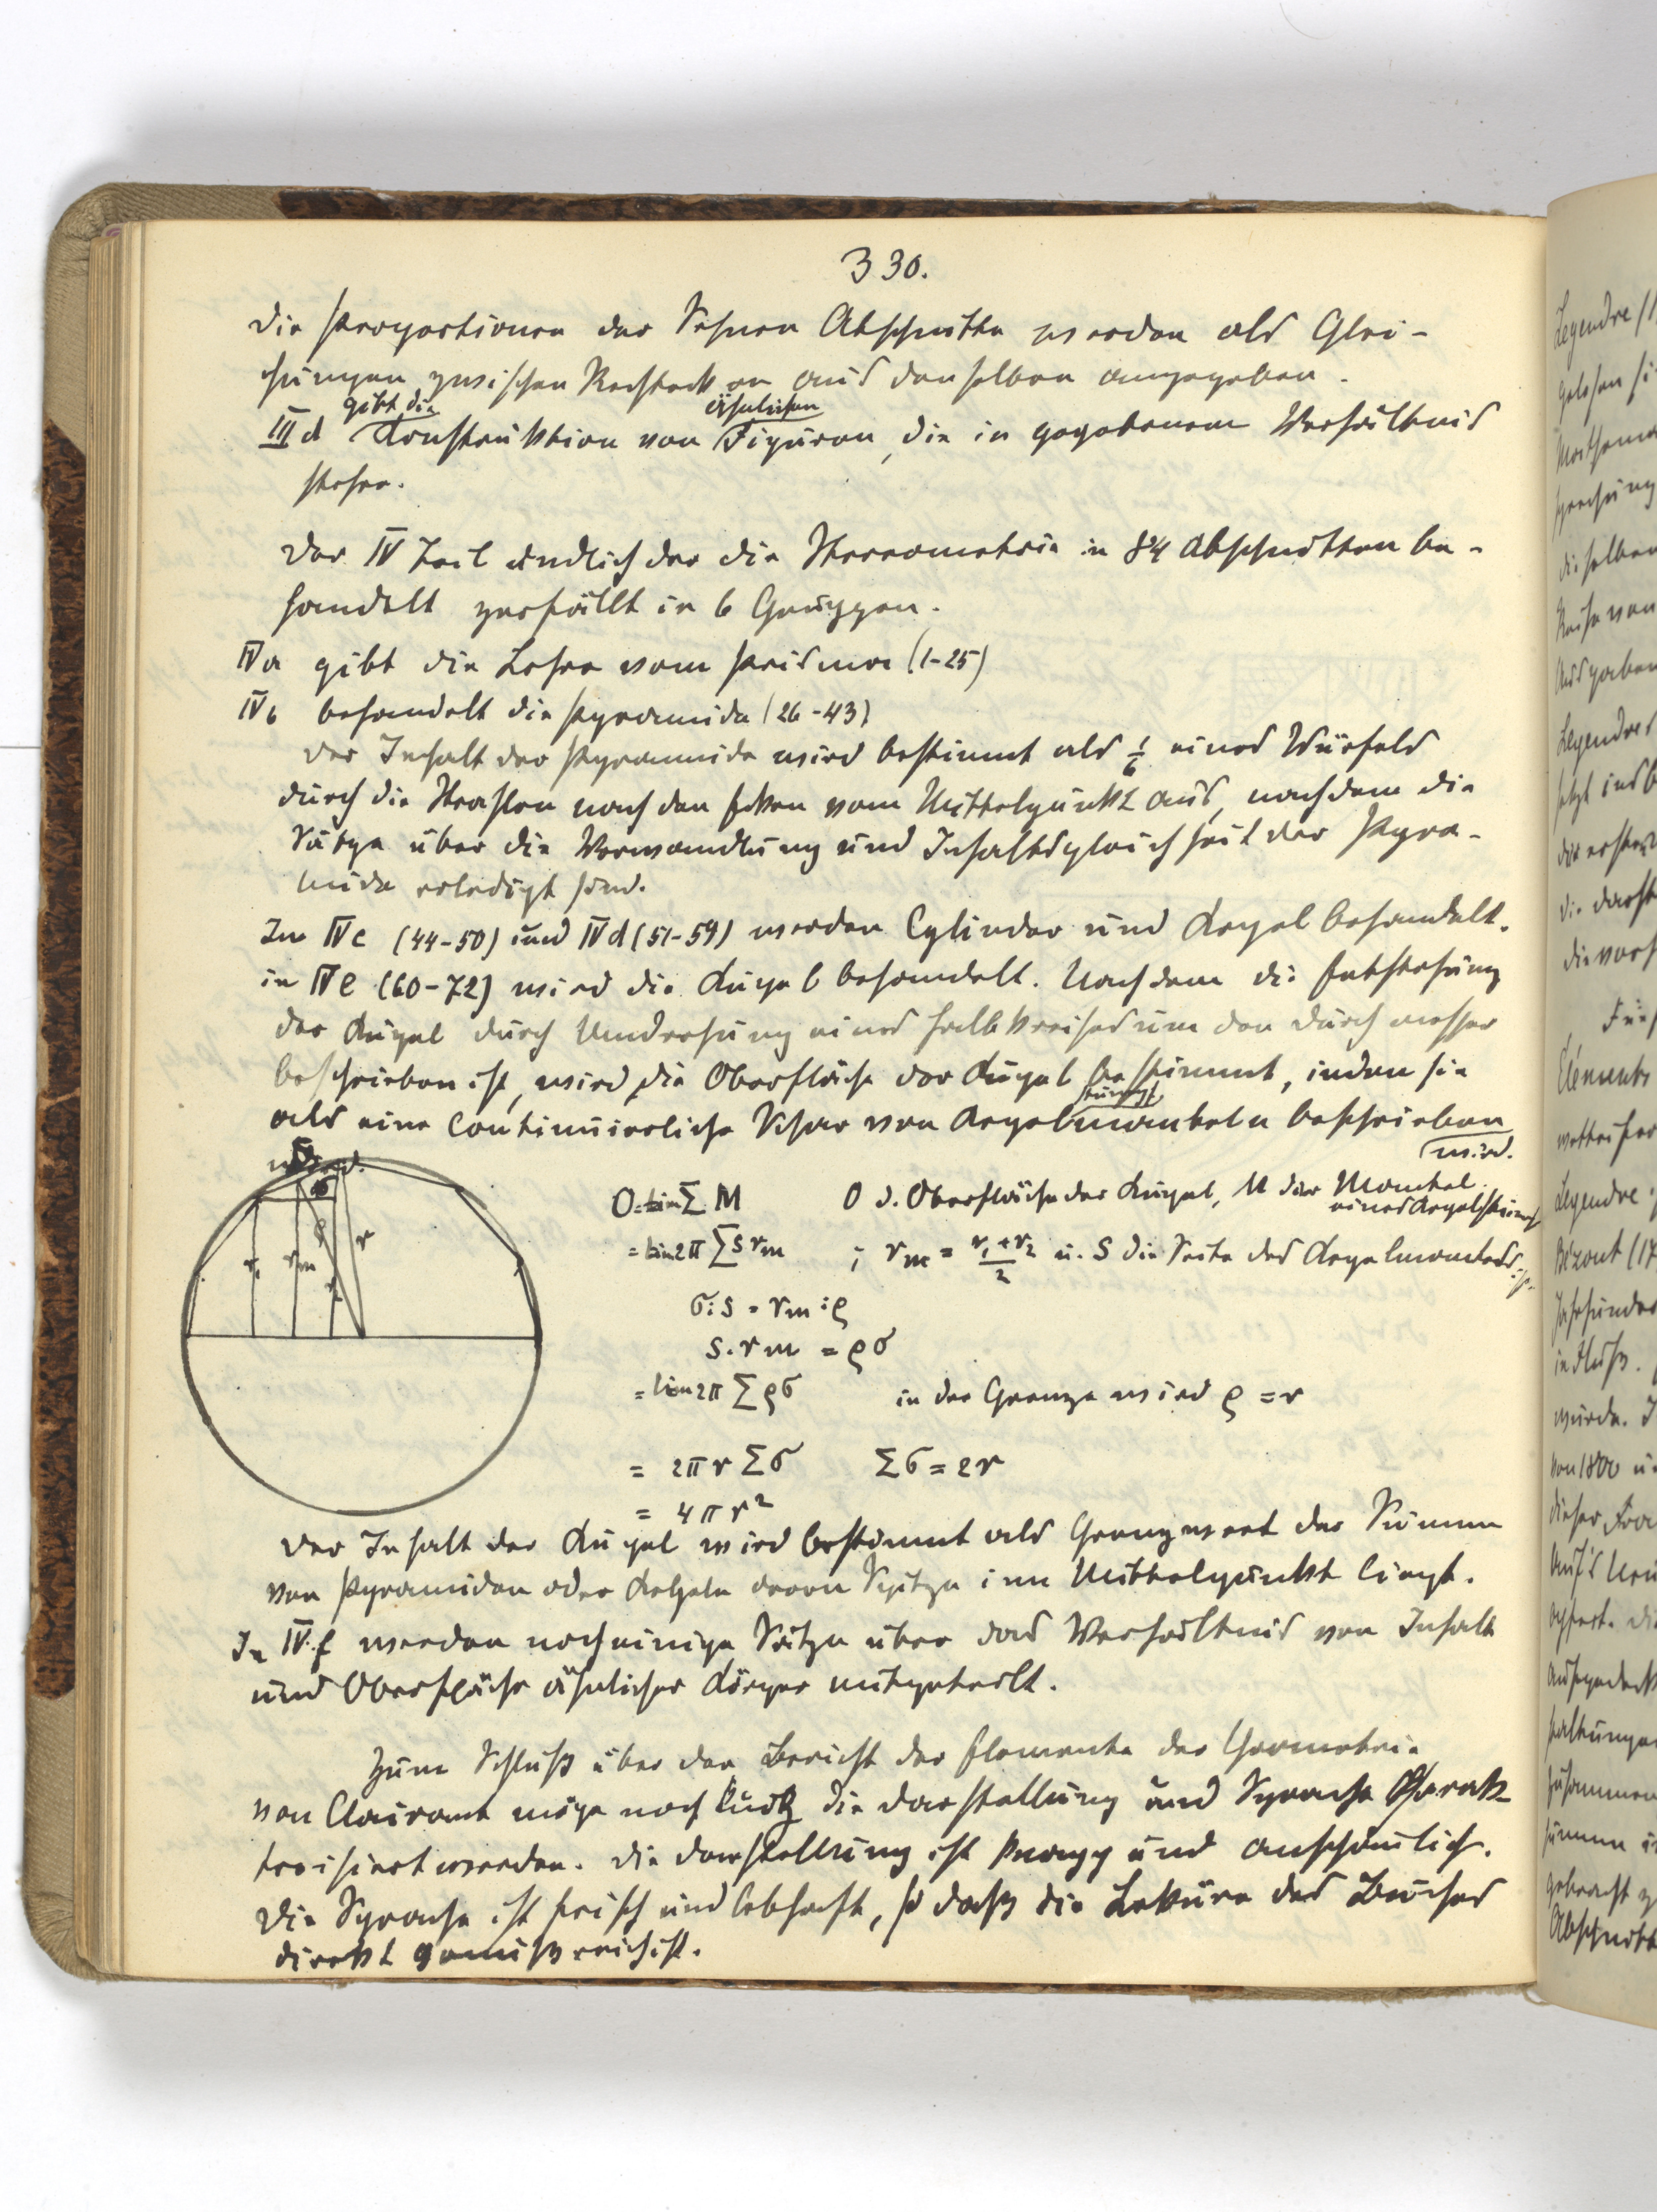 330.
Die Proportionen der Sehnen Abschnitte werden als Glei-
chungen zwischen Rechtecken aus denselben angegeben.
III d gibt die Konstruktion von ähnlichen Figuren, die in gegebenem Verhältnis
stehen.
Der IV Teil endlich der die Stereometrie in 84 Abschnitten be-
handelt zerfällt in 6 Gruppen.
IV a gibt die Lehre vom Prisma (1-25)
IV b behandelt die Pyramide (26-43)
Der Inhalt der Pyramide wird bestimmt als 1/6 eines Würfels
durch die Strahlen nach den Ecken vom Mittelpunkt aus, nachdem die
Sätze über die Verwandlung und Inhaltsgleichheit der Pyra-
mide erledigt sind.
In IV c (44-50) und IV d (51-59) werden Cylinder und Kegel behandelt.
in IV e (60-72) wird die Kugel behandelt. Nachdem die Entstehung
der Kugel durch Umdrehung eines Halbkreises um den Durchmesser
beschrieben ist, wird die Oberfläche der Kugel bestimmt, indem sie
als eine continuierliche Schar von Kegelstumpfmänteln beschrieben
wird.
O = lim Σ M O d. Oberfläche der Kugel, M der Mantel
eines Kegelstumpfs
= lim 2π Σ s rm ; rm = r1 + r2 / 2 u. s die Seite des Kegelmantels ist.
σ : s = rm : ρ
s. rm = ρσ
= lim 2π Σ ρσ in der Grenze wird ρ = r
= 2πr Σσ Σσ = 2r
= 4πr²
σ
ρ
r
r1
rm
r2
Der Inhalt der Kugel wird bestimmt als Grenzwert der Summe
von Pyramiden oder Kegeln deren Spitze im Mittelpunkt liegt.
In IV f werden noch einige Sätze über das Verhältnis von Inhalt
und Oberfläche ähnlicher Körper mitgeteilt.
Zum Schluß über den Bericht der Elemente der Geometrie
von Clairaut möge noch kurz die Darstellung und Sprache Charak-
terisiert werden. Die Darstellung ist knapp und anschaulich.
Die Sprache ist frisch und lebhaft, so daß die Lektüre des Buches
direkt genußreich ist.
Legendre
Éléments
Legendre
Bézout (17
von 1800 u.